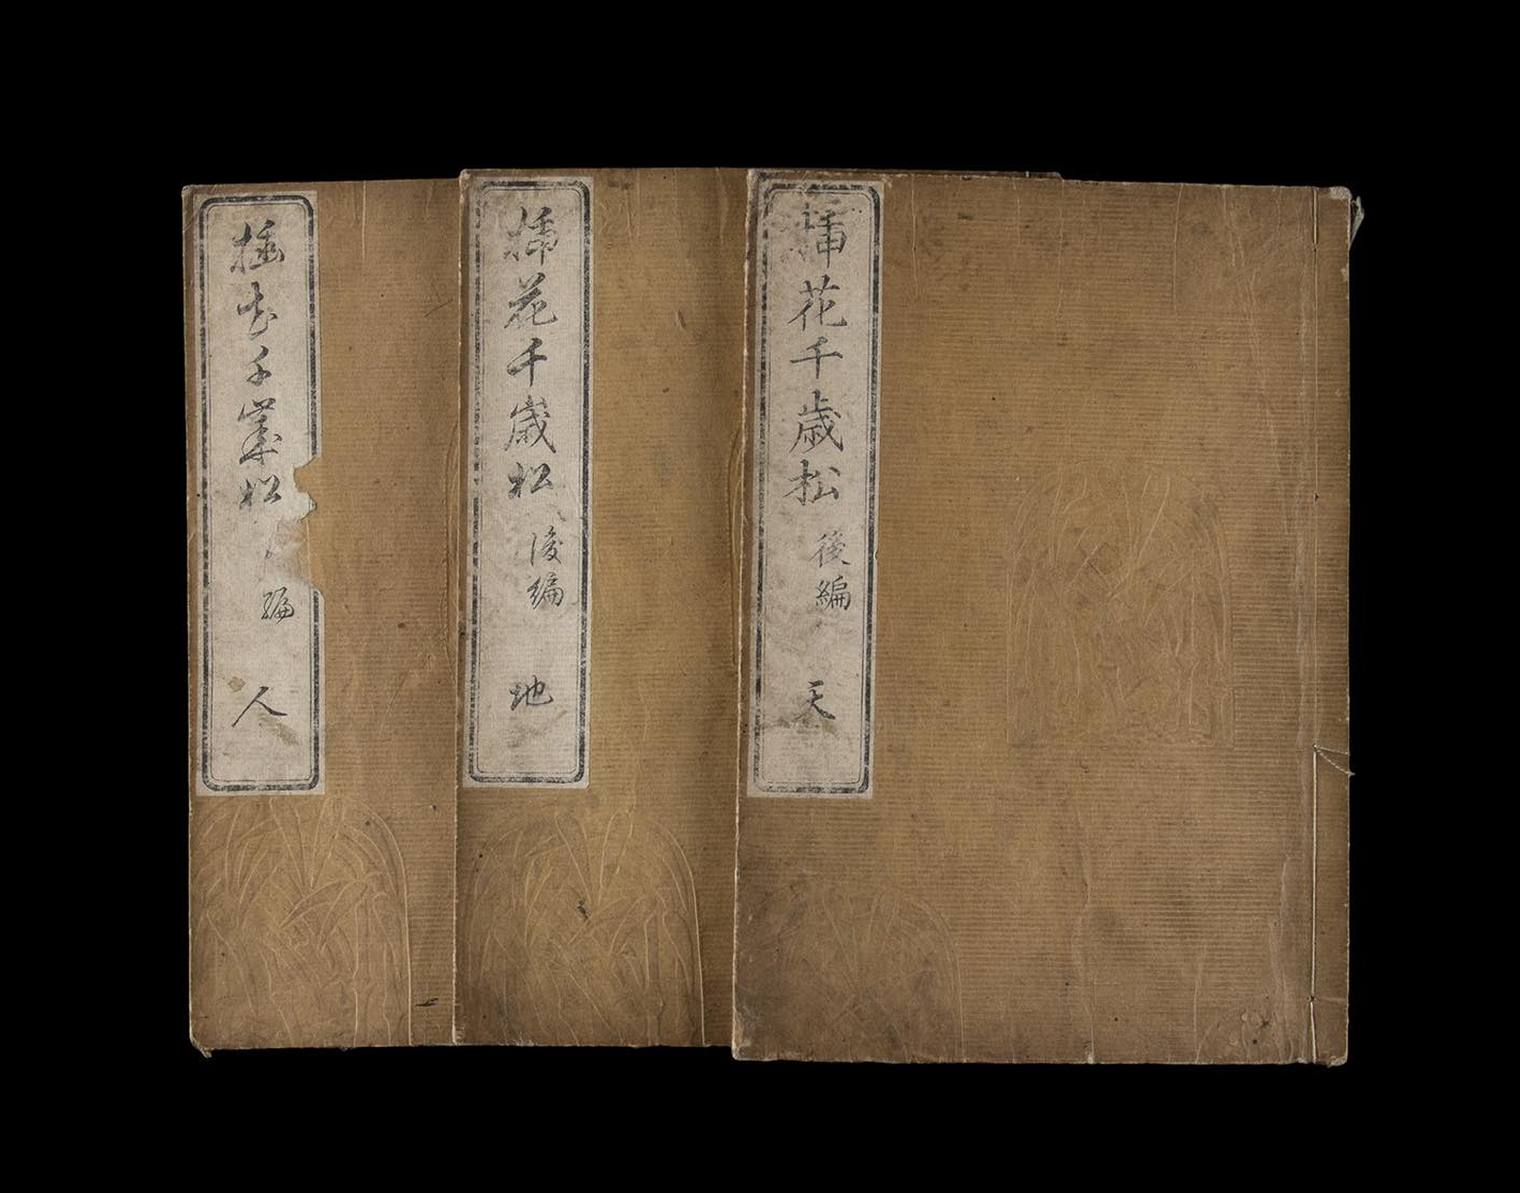 挿花千歳松 後編 天
挿花千歳松 後編 地
挿花千歳松 編 人